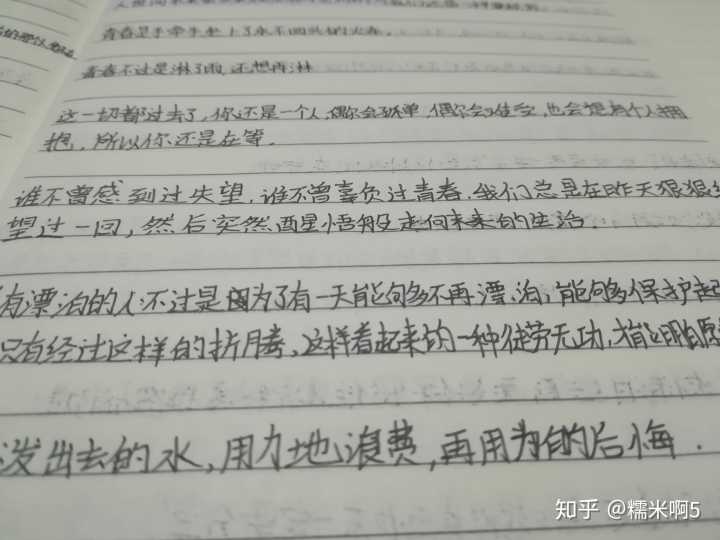 青春是手牵手坐上了永不回头的火车.
青春不过是淋了雨,还想再淋
这一切都过去了,你还是一个人,偶尔会孤单,偶尔会难受,也会想有个人拥
抱,所以你还是在等.
谁不曾感到过失望,谁不曾辜负过青春.我们总是在昨天狠狠
望过一回,然后突然醒悟般走向未来的生活.
有漂泊的人不过是因为了有一天能够不再漂泊,能够保护
只有经过这样的折腾,这样看起来的一种徒劳无功,才能明白
泼出去的水,用力地浪费,再用力的后悔.
知乎 @糯米啊5